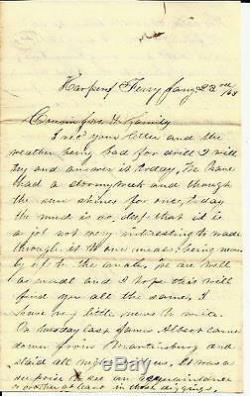 Harpers Ferry Jany 22nd /63
Cousin & Family
I rec'd your letter and the
weather being bad for drill I will
try and answer it today. We have
had a stormy week and though
the sun shines for once, to day
the mud is so deep that it is
a job not very interesting to wade
through it the means being near
by up to the ankle. We are well
as usual and I hope this will
find you all the same. I
have very little news to write.
On tuesday last James Albert came
down from Martinsburg and
staid all night with us. It was a
surprise to see an acquaintance
or other at least in these diggings.